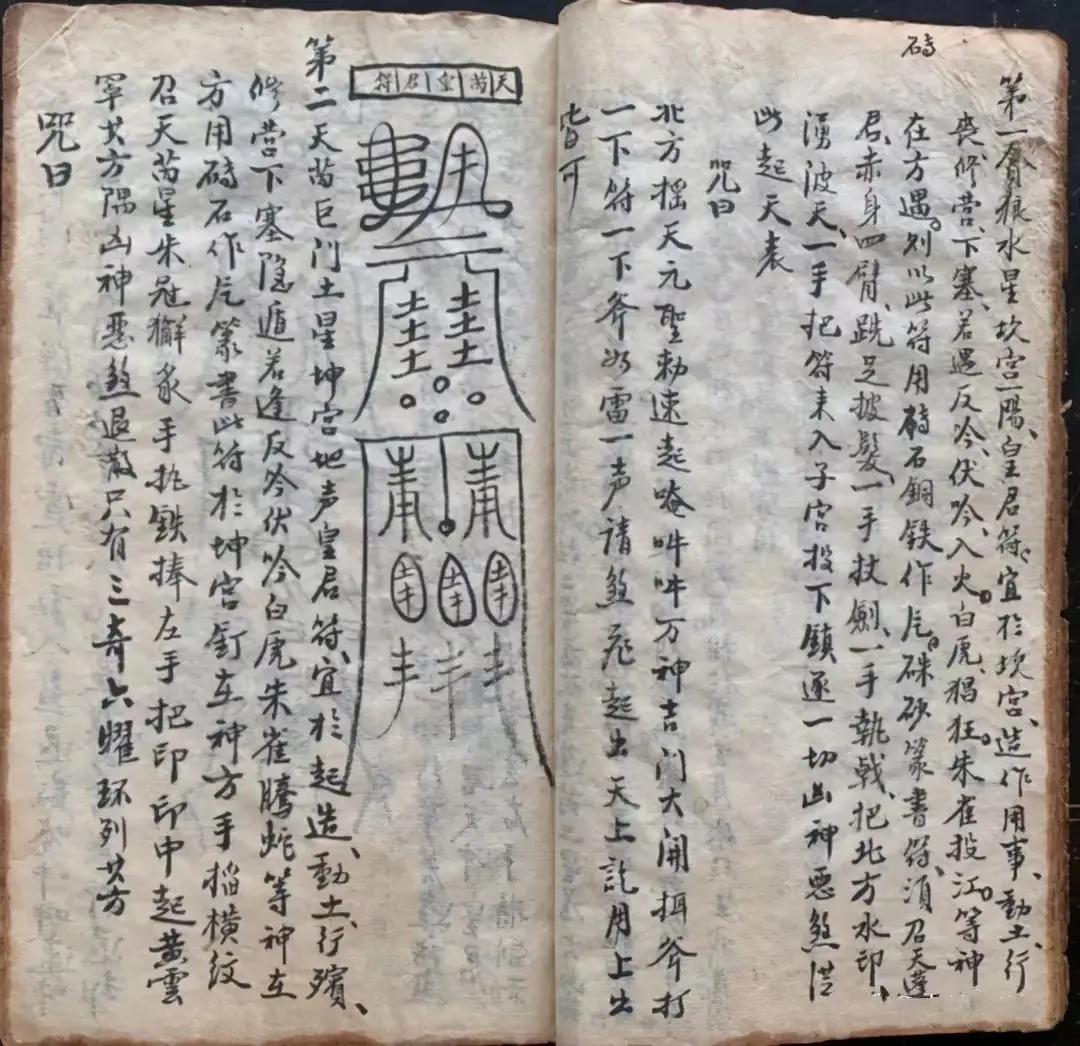 砖
第一貪狼水星坎宫一陽皇君符宜於坎宫、造作用事、動土、行
喪、修营、下塞、若遇反吟、伏吟、入火。白虎、猖狂。朱雀投江。等神
在方遇。别以此符用砖石銅鉄作瓦。硃砂篆書符、須召天蓬
君、赤身四臂、跣足披髮、一手扙劍、一手執戟、把北方水印、
湧波天、一手把符来入子宫投下鎮遂一切凶神恶煞
此起天表
咒曰
北方摇天元聖勅速起唵吽吽万神吉门大開揖斧打
一下符一下斧如雷一声請煞起出天上訖用上出
皆可
天芮皇君符
第二天芮巨门土星坤宫地声皇君符、宜於起造、動土、行殯、
修营下塞隐遁若逢反吟伏吟白虎朱雀騰蛇等神在
方用砖石作瓦篆書此符於坤宫釘在神方手掐横纹
召天芮星朱冠獬豸手扥鉄捧左手把印印中起黄雲
罩其方隅凶神惡煞退散只有三奇六耀环列其方
咒曰